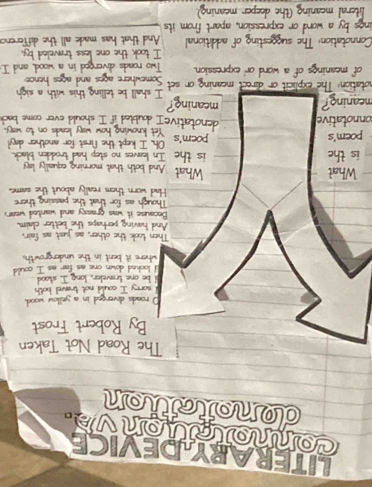 LITERARY DEVICE
connotation vs
denotation
The Road Not Taken
By Robert Frost
roads diverged in a yellow wood,
sorry I could not travel both
be one traveler, long I stood
looked down one as far as I could
where it bent in the undergrowth;
Then took the other, as just as fair,
And having perhaps the better claim,
Because it was grassy and wanted wear;
Though as for that the passing there
Had worn them really about the same,
And both that morning equally lay
In leaves no step had trodden black.
Oh, I kept the first for another day!
Yet knowing how way leads on to way,
I doubted if I should ever come back
I shall be telling this with a sigh
Somewhere ages and ages hence:
Two roads diverged in a wood, and I
I took the one less traveled by,
And that has made all the difference
What
is the
poem's
denotative
meaning?
What
is the
poem's
connotative
meaning?
notation: The explicit or direct meaning or set
of meanings of a word or expression.
Connotation: The suggesting of additional
ings by a word or expression apart from its
literal meaning (the deeper meaning)